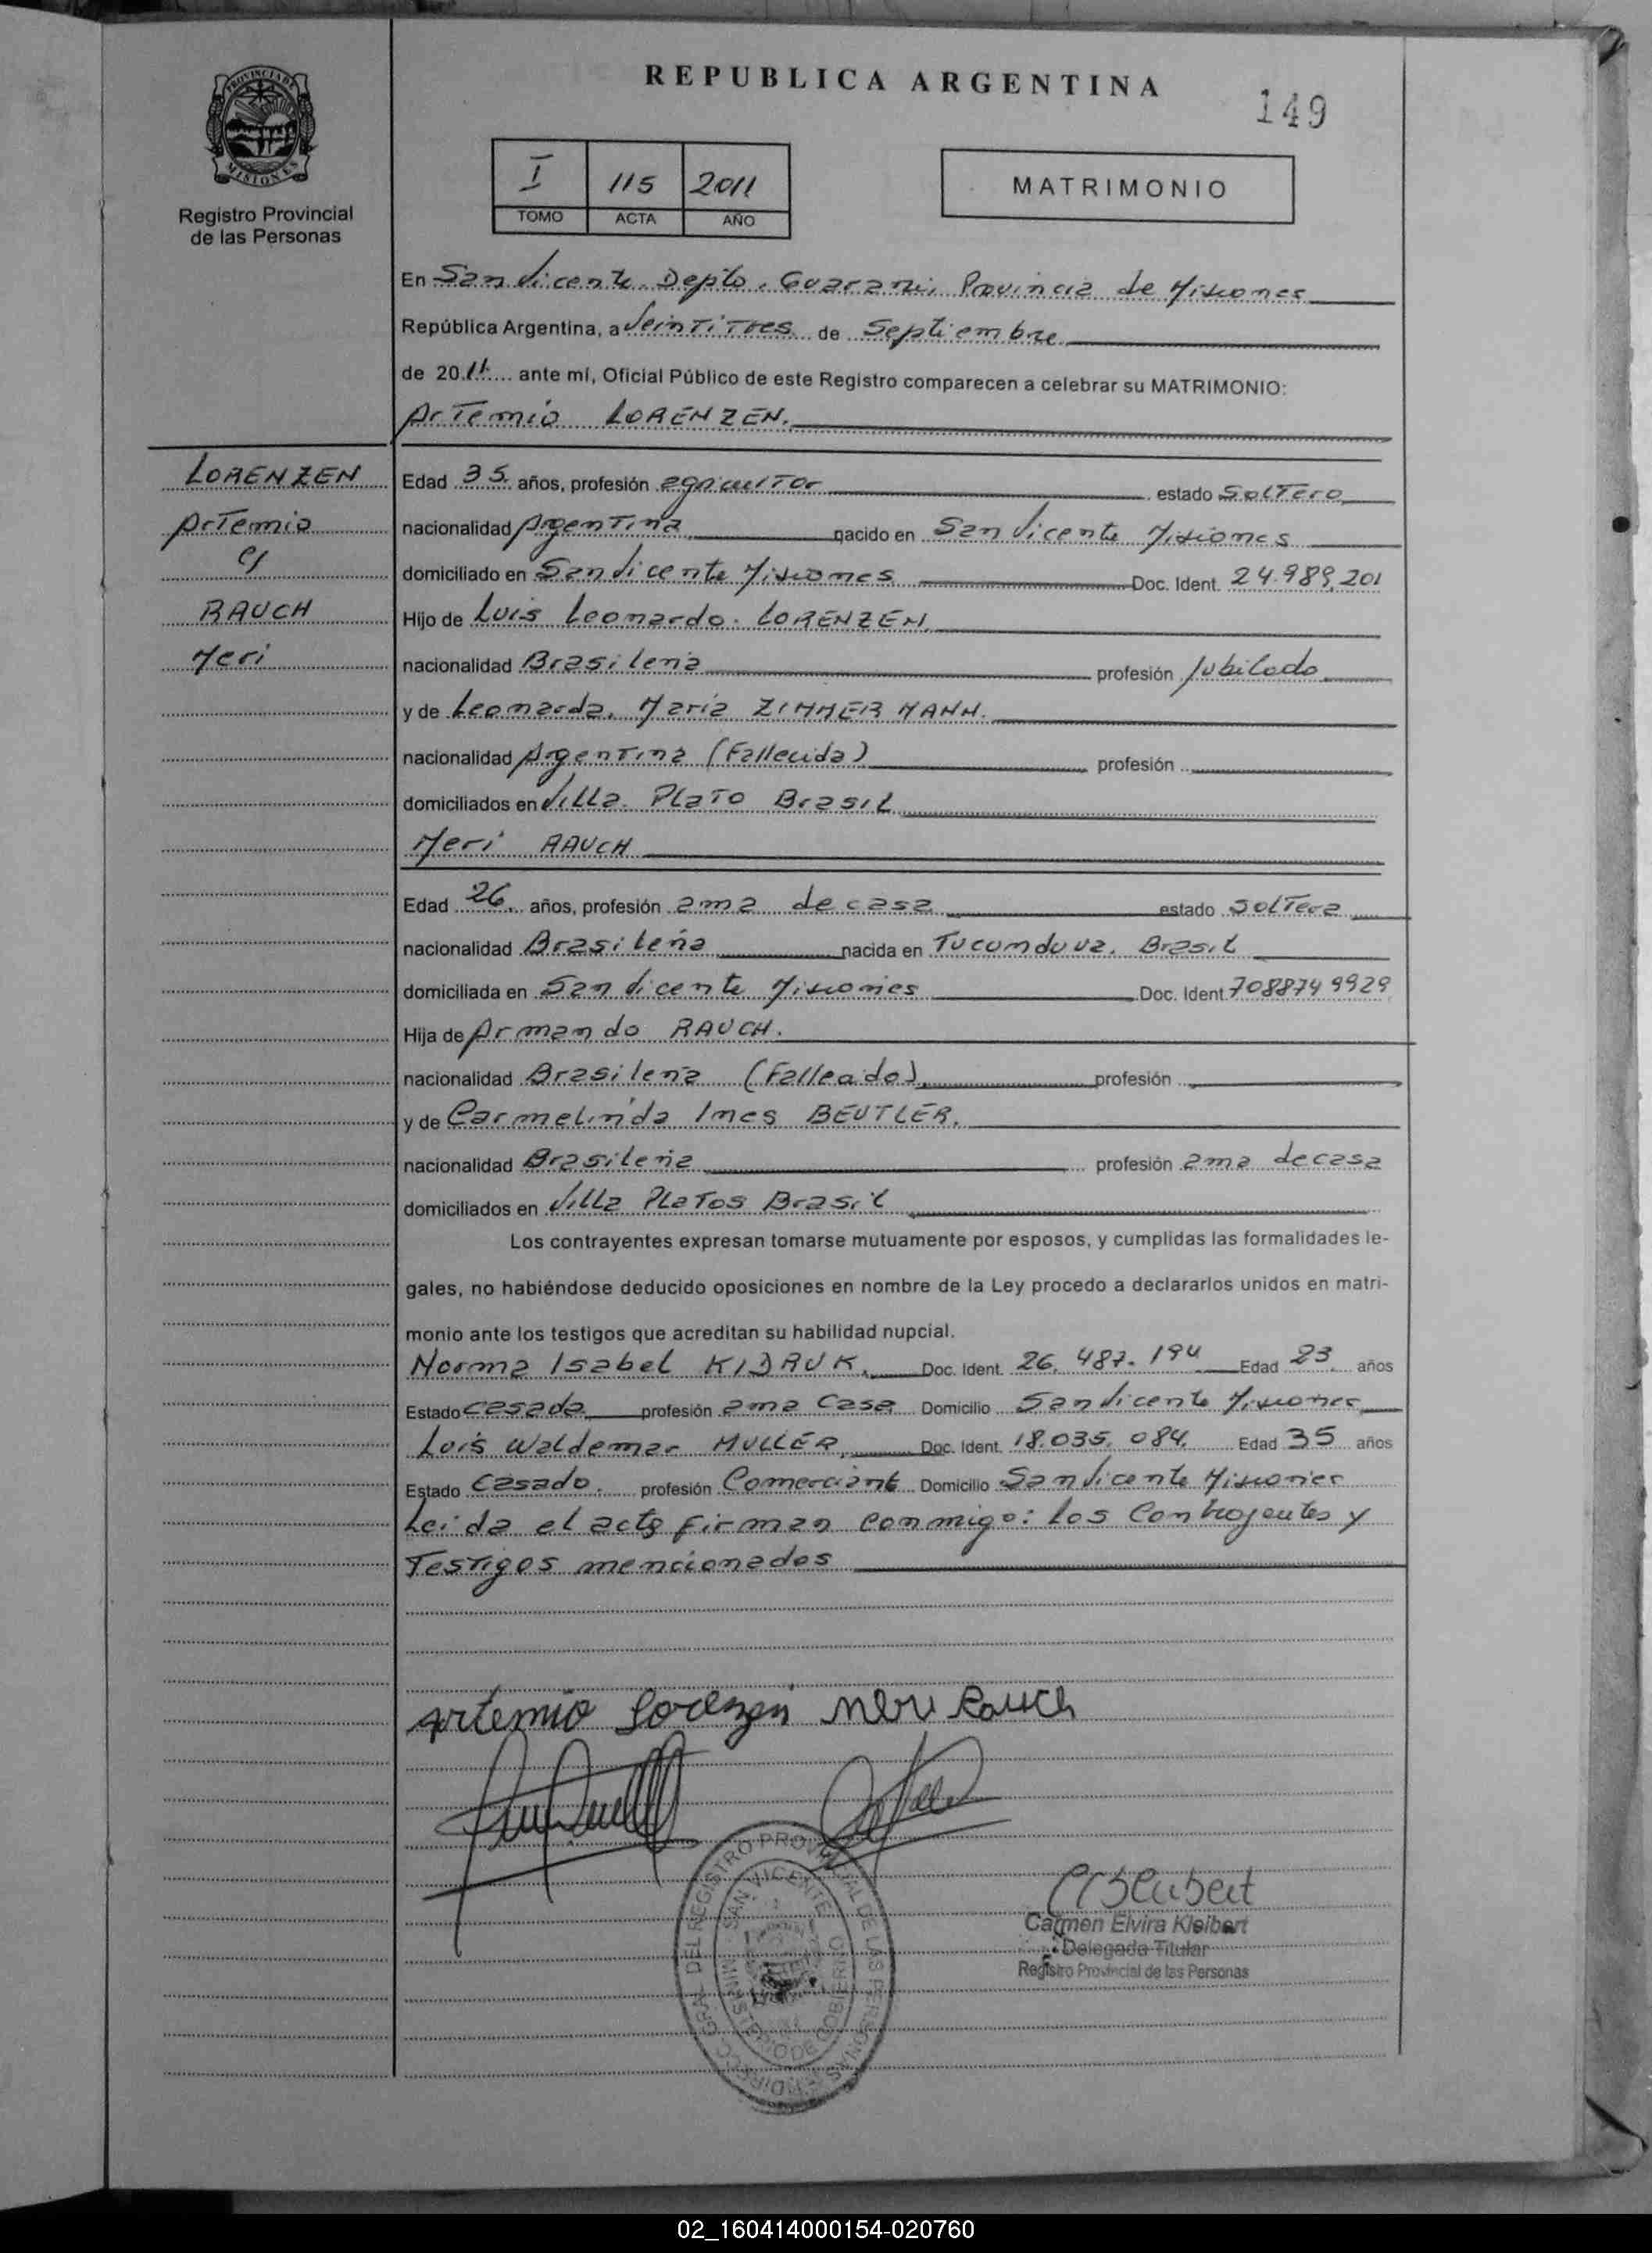 REPUBLICA ARGENTINA
149
PROVINCIA DE
MISIONES
Registro Provincial
de las Personas
I 115 2011
TOMO ACTA AÑO
MATRIMONIO
En San Vicente Depto. Guarani, Provincia de Misiones
República Argentina, a Veintitres de Septiembre
de 2011 ante mí, Oficial Público de este Registro comparecen a celebrar su MATRIMONIO:
Artemio LORENZEN.
LORENZEN
Artemio
c/
RAUCH
Meri
Edad 35. años, profesión agricultor estado Soltero
nacionalidad Argentina nacido en San Vicente Misiones
domiciliado en San Vicente Misiones Doc. Ident. 24.989.201
Hijo de Luis Leonardo. LORENZEN.
nacionalidad Brasileña profesión Jubilado
y de Leonarda, Maria ZIMMERMANN.
nacionalidad Argentina (Fallecida) profesión
domiciliados en Villa. Plato Brasil
Meri RAUCH
Edad 26. años, profesión ama de casa estado Soltera
nacionalidad Brasileña nacida en Tucunduva, Brasil
domiciliada en San Vicente Misiones Doc. Ident. 7088749929
Hija de Armando RAUCH.
nacionalidad Brasileña (Fallecido) profesión
y de Carmelinda Ines BEUTLER.
nacionalidad Brasileña profesión ama de casa
domiciliados en Villa Platos Brasil
Los contrayentes expresan tomarse mutuamente por esposos, y cumplidas las formalidades le-
gales, no habiéndose deducido oposiciones en nombre de la Ley procedo a declararlos unidos en matri-
monio ante los testigos que acreditan su habilidad nupcial.
Norma Isabel KIDRUK. Doc. Ident. 26.487.194 Edad 23. años
Estado casada profesión ama casa Domicilio San Vicente Misiones
Luis Waldemar MULLER. Doc. Ident. 18.035.084. Edad 35 años
Estado Casado. profesión Comerciante Domicilio San Vicente Misiones
Leida el acta firman conmigo: los Contrayentes y
Testigos mencionados
Artemio Lorenzen Meri Rauch
DIRECC. GRAL. DEL REGISTRO PROVINCIAL DE LAS PERSONAS
SAN VICENTE
MINISTERIO DE GOBIERNO
Carmen Elvira Kleibert
Delegada Titular
Registro Provincial de las Personas
02_160414000154-020760